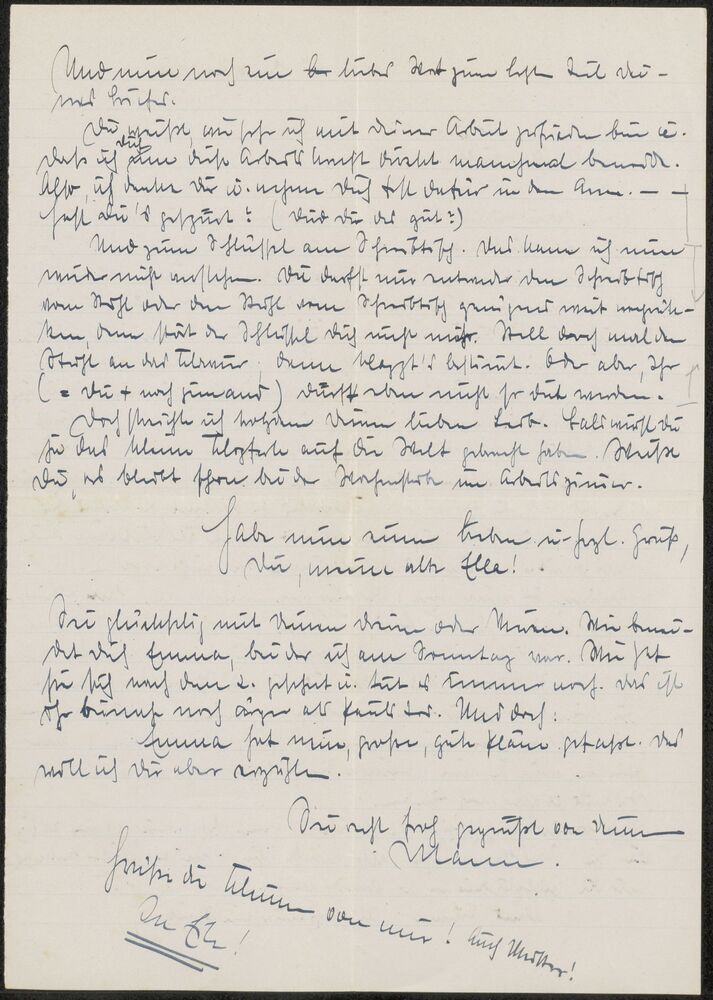 Und nun noch ein liebes Wort zum letzten Teil dei-
nes Briefes.
Du weißt, wie sehr ich mit deiner Arbeit zufrieden bin u.
daß ich dich um diese Arbeitskraft direkt manchmal beneide.
Also, ich danke dir u. nehme dich fest dafür in den Arm. — —
Hast du's gespürt? (Tut dir das gut?)
Und zum Schlüssel am Schreibtisch. Das kann ich nun
wieder nicht verstehen. Du darfst nur entweder den Schreibtisch
vom Stuhl oder den Stuhl vom Schreibtisch genügend weit wegrük-
ken, dann stört der Schlüssel dich nicht mehr. Stell doch mal den
Stuhl an das Klavier, dann klappt's bestimmt. Oder aber, Ihr
(= du + noch jemand) dürft eben nicht so dick werden.
Doch streichle ich trotzdem deinen lieben Leib. Bald wirst du
ja das kleine auf die Welt gebracht haben. Weißt
Du, es bleibt schon bei der Wochenstube im Arbeitszimmer.
Habe nun einen lieben u. herzl. Gruß,
du, meine alte Elle!
Sei glückselig mit deinen Wie benei-
det dich Emma, bei der ich am Sonntag war. Wie hat
sie sich nach dem 2. gesehnt u. tut es immer noch. Das ist
noch als Und doch:
Emma hat neue, große, gute Pläne gefaßt. Das
will ich dir aber erzählen.
Sei recht froh gegrüßt von deinem
Mann.
Grüße die Kleinen von mir! Auch Mutter!